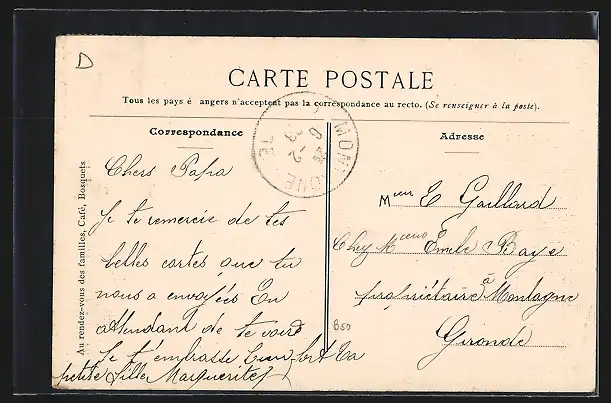 D
CARTE POSTALE
Tous les pays é angers n'acceptent pas la correspondance au recto. (Se renseigner à la poste).
Correspondance
Chers Papa
Je te remercie de tes
belles cartes que tu
nous a envoyées En
attendant de te voire
Je t'embrasse bien fort Ta
petite fille Marguerite
Adresse
E Gaillard
Chez Emile Baye
propriétaire à Montagne
Gironde
B50
Au rendez-vous des familles, Café, Bosquets